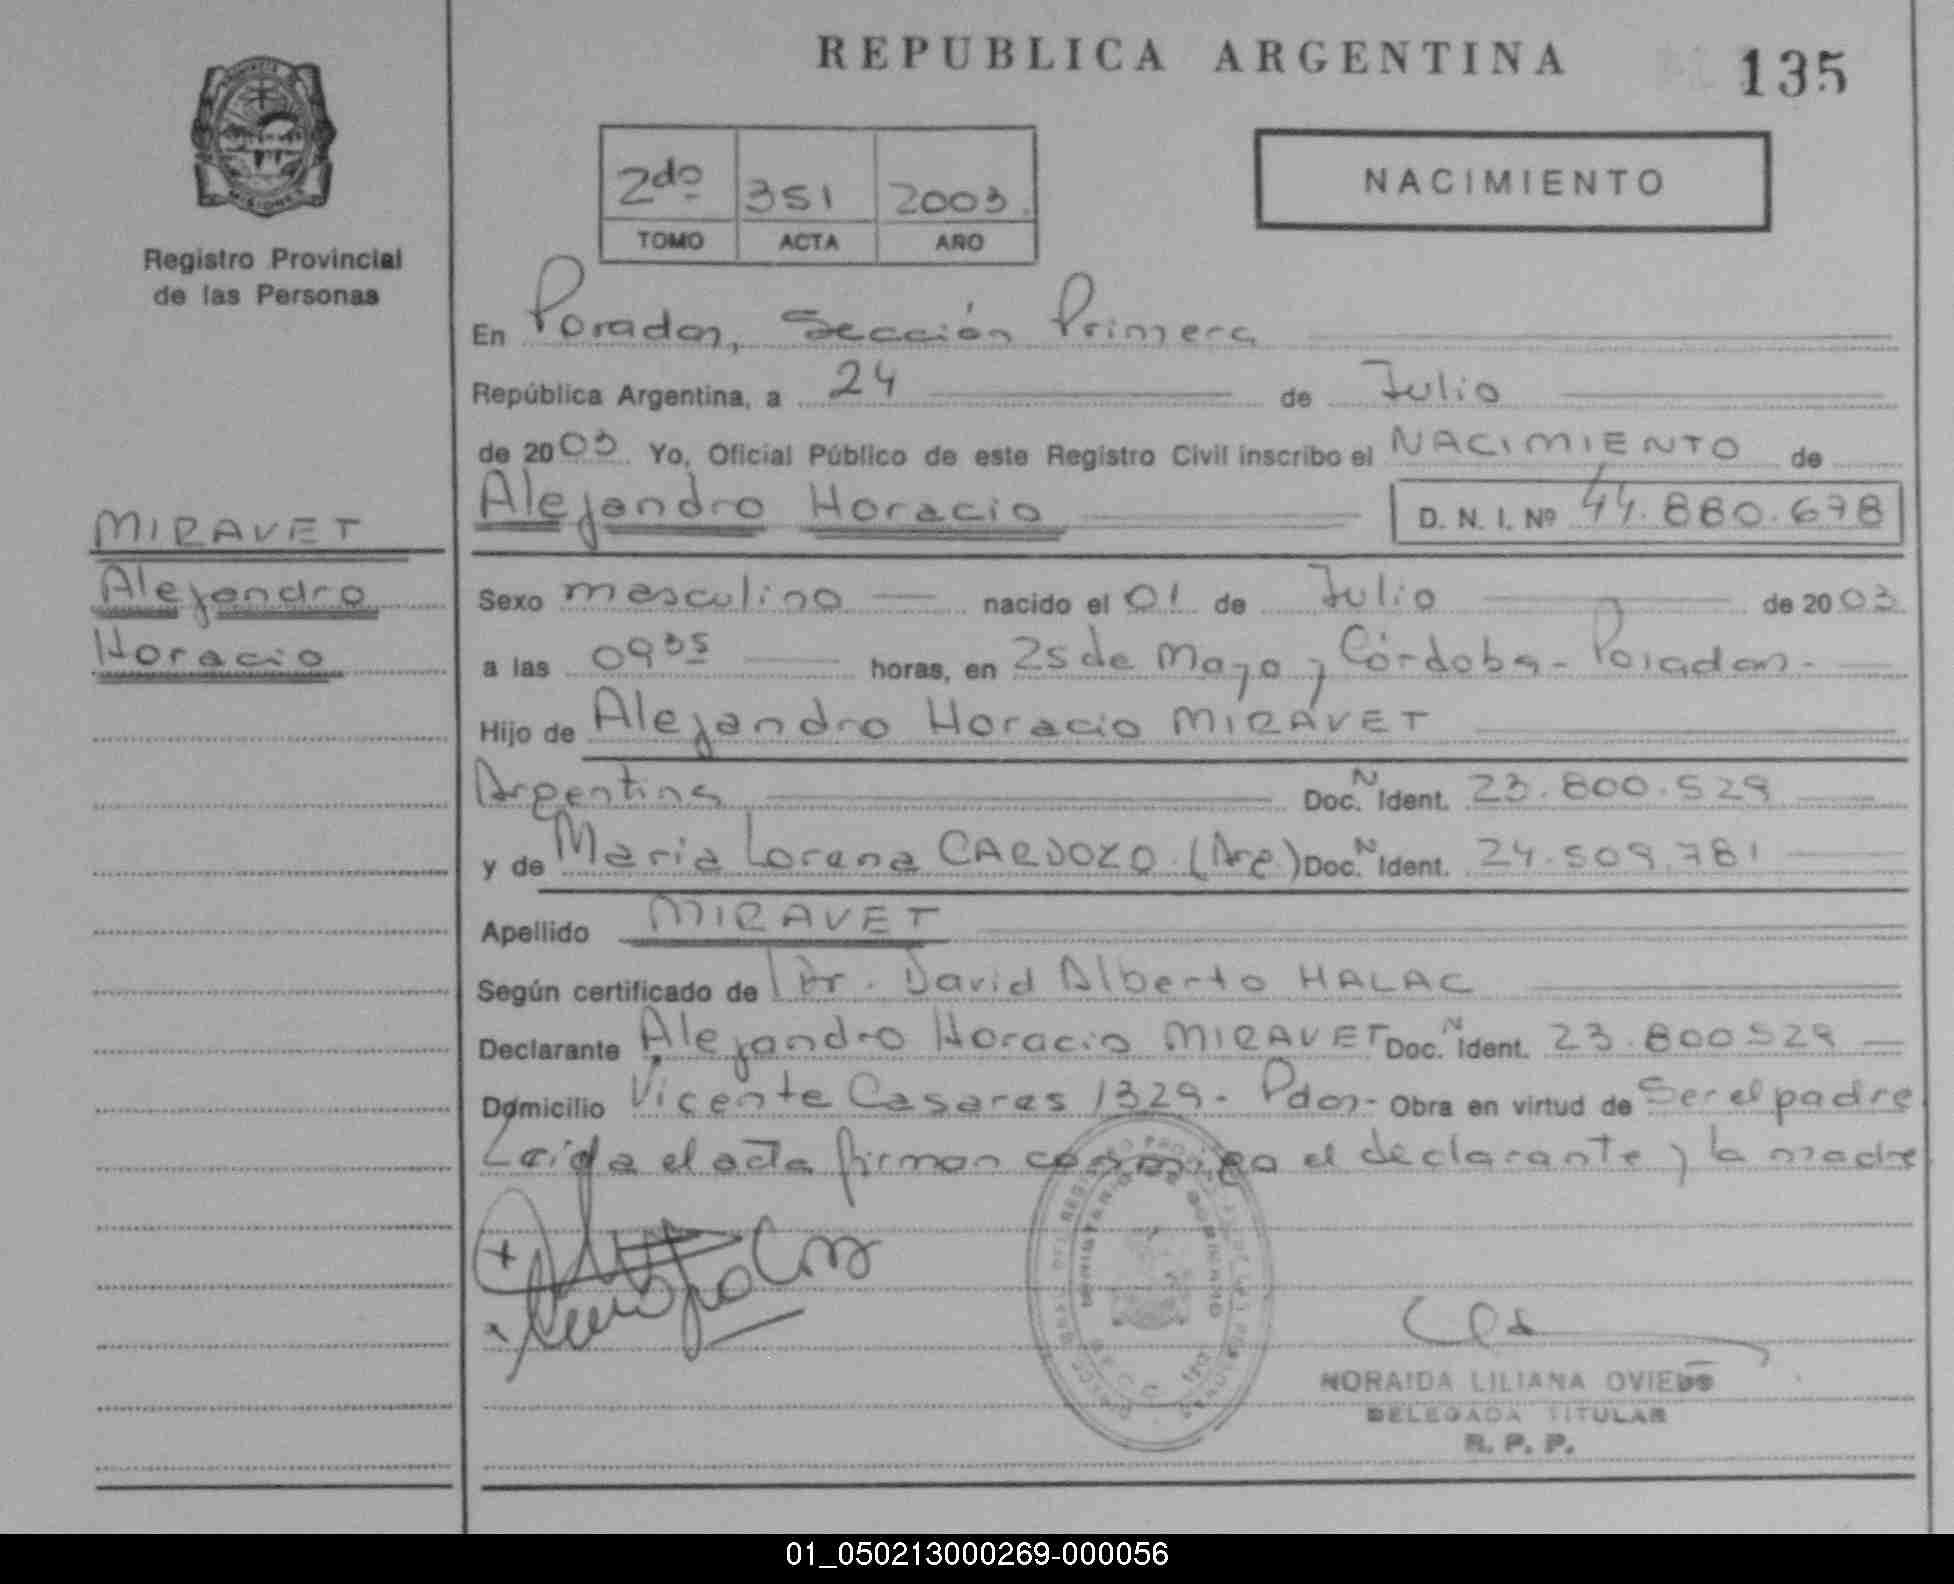 REPUBLICA ARGENTINA
135
2do 351 2003
TOMO ACTA AÑO
NACIMIENTO
Registro Provincial
de las Personas
En Posadas, Sección Primera
República Argentina, a 24 de Julio
de 2003 Yo, Oficial Público de este Registro Civil inscribo el NACIMIENTO de
Alejandro Horacio D. N. I. Nº 44.880.678
MIRAVET
Alejandro
Horacio
Sexo masculino nacido el 01 de Julio de 2003
a las 0935 horas, en 25 de Mayo y Córdoba - Posadas -
Hijo de Alejandro Horacio MIRAVET
Argentina Doc. N Ident. 23.800.529
y de Maria Lorena CARDOZO (Arg) Doc. N Ident. 24.509.781
Apellido MIRAVET
Según certificado de Dr. David Alberto HALAC
Declarante Alejandro Horacio MIRAVET Doc. N Ident. 23.800529
Domicilio Vicente Casares 1329 - Pdas - Obra en virtud de Ser el padre
Leida el acta firman conmigo el declarante y la madre
MINISTERIO DE GOBIERNO
NORAIDA LILIANA OVIEDO
DELEGADA TITULAR
R. P. P.
01_050213000269-000056